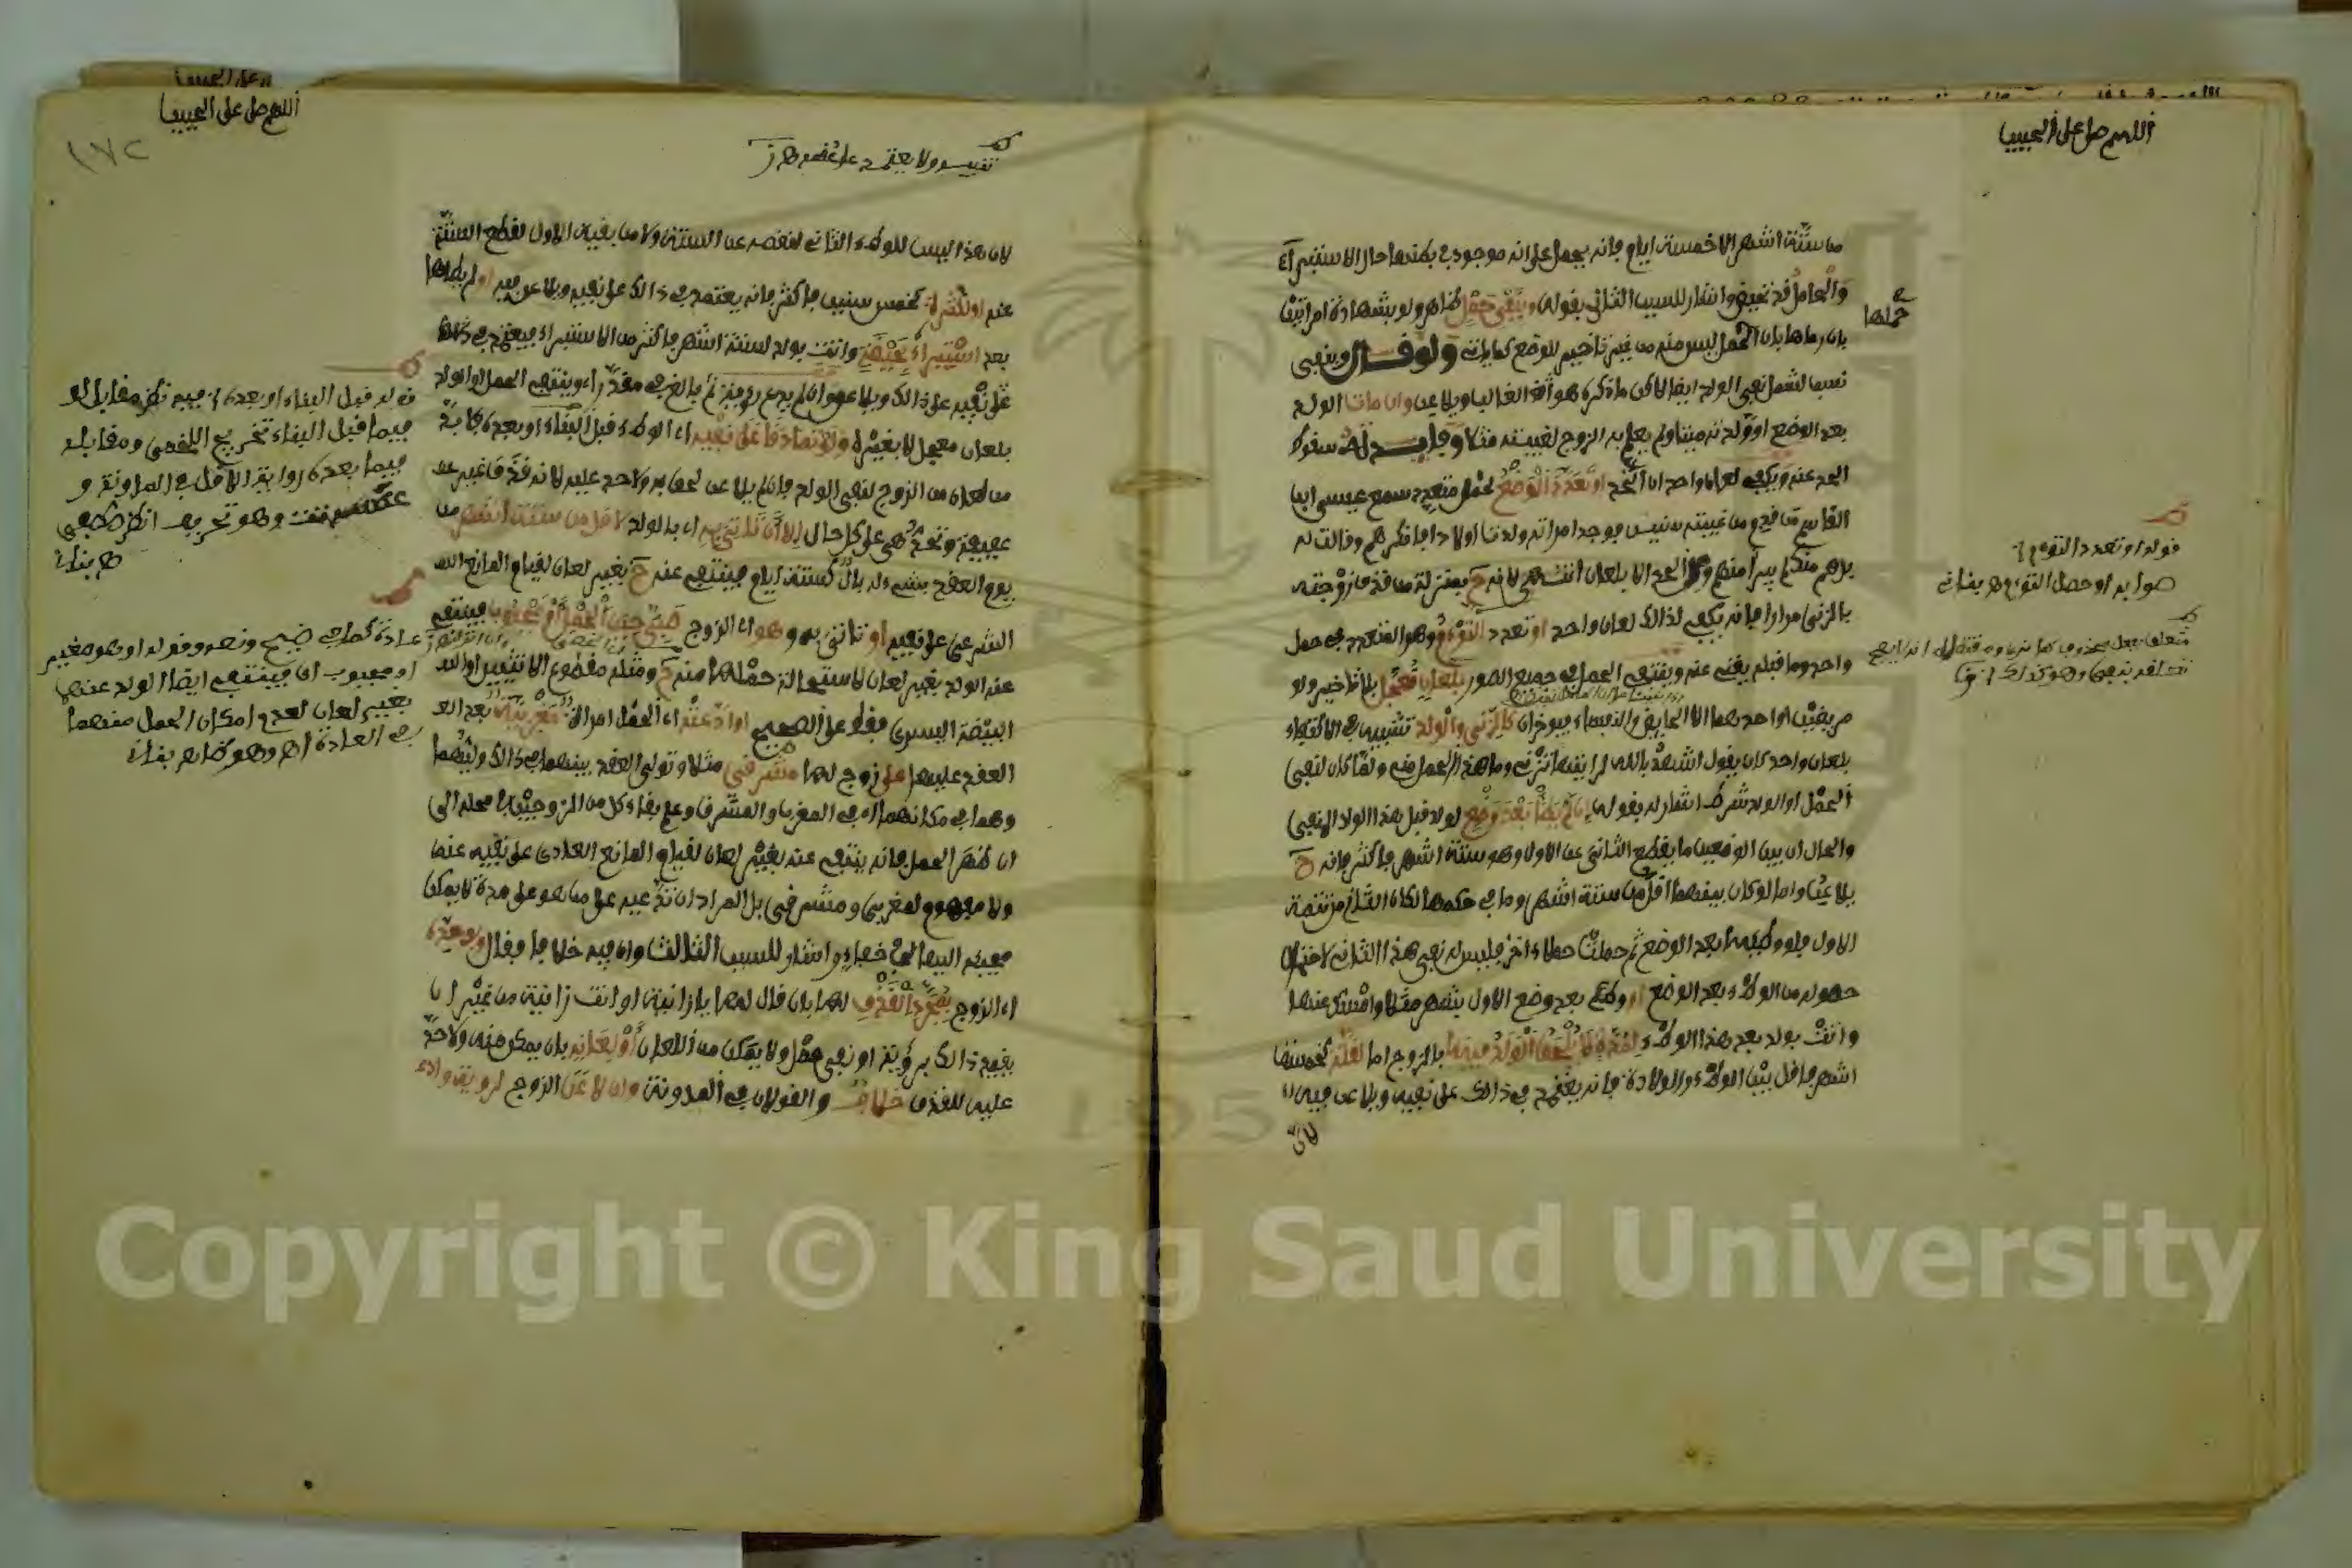 اللهم صل على الحبيب
من ستة اشهر الا خمسة ايام فانه يحمل على انه موجود في بطنها حال الاستبراء
والعامل قد تحقيق واشار للسبب الثاني بقوله وبنفي حمل ظاهر ولو بشهادة امراتين
حملها
بان رماها بان الحمل ليس منه من غير تاخير للوضع كما ياتي ولو قال وبنفي
نسب لشمل نفي الولد ايضا لاكن ما ذكره هو الغالب ويلاعن وان مات الولد
بعد الوضع او ولدته ميتا ولم يعلم به الزوج لغيبته مثلا وفايدته سقوط
الحد عنه ويكفي لعان واحد ان اتحد او تعدد الوضع لحمل متعدد سمع عيسى ابن
القاسم من قدم من غيبته سنين فوجد امراته ولدت اولادا فانكرهم وقالت له
بل هم منك لم يبرا منهم و الحد الا بلعان انتهى لانه ح بمنزلة من قذف زوجته
بالزنى مرارا فانه يكفي لذلك لعان واحد او تعدد التوءم وهو المتعدد في حمل
واحد وما قبله يغني عنه وينتفي الحمل في جميع الصور بلعان معجل بلا تاخير ولو
مريضين او احدهما الا الحايض والنفساء فيوخران كالزنى والولد تشبيه في الاكتفاء
بلعان واحد كان يقول اشهد بالله لرايتها تزني وما هذا الحمل مني ولما كان لنفي
الحمل او الولد شرط اشار له بقوله ان لم يطا بعد وضع لولد قبل هذا الولد المنفي
والحال ان بين الوضعين ما يقطع الثاني عن الاول وهو ستة اشهر فاكثر فانه ح
يلاعن واما لو كان بينهما اقل من ستة اشهر وما في حكمها لكان الثاني من تتمة
الاول فلو وطيها بعد الوضع ثم حملت حملا ءاخر فليس له نفي هذا الثاني لاحتمال
حصوله من الوطء بعد الوضع او وطئ بعد وضع الاول بشهر مثلا وامسك عنها
واتت بولد بعد هذا الوطء لمدة لا يلحق الولد فيها بالزوج اما لقلة كخمسة
اشهر فاقل بين الوطء والولادة فانه يعتمد في ذلك على نفيه ويلاعن فيه
لان
قوله او تعدد التوءم
صوابه او حصل التوءم ه بناني
اللهم صل على الحبيب
١٧٢
لان هذا ليس للوطء الثاني لنقصه عن الستة ولا من بقية الاول لقطع الستة
عنه او لكثرة كخمس سنين فاكثر فانه يعتمد في ذلك على نفيه ويلاعن فيه او لم يطاها
بعد استبراء بحيضة واتت بولد لستة اشهر فاكثر من الاستبراء فيعتمد في
على نفيه على ذلك ويلاعن وان لم يدع رؤية ثم بالغ في مقدر اي وينتفي الحمل او الولد
بلعان معجل لا بغيره ولو تصادقا على نفيه اي الولد قبل البناء او بعده فلا بد
من لعان من الزوج لنفي الولد فان لم يلاعن لحق به ولا حد عليه لانه قذف غير
عفيفة وتحد هي على كل حال الا ان تاتي به اي بالولد لاقل من ستة اشهر من
يوم العقد بشيء له بال كستة ايام فينتفي عنه ح بغير لعان لقيام المانع
الشرعي على نفيه او تاتي به وهو اي الزوج صبي حين الحمل او مجبوب فينتفي
عنه الولد بغير لعان لاستحالة حملها منه ح ومثله مقطوع الانثيين او
البيضة اليسرى فقط على الصحيح او ادعته اي الحمل امراة مغربية بعد
العقد عليها على زوج لها مشرقي مثلا وتولى العقد بينهما في ذلك وليهما
وهما في مكانهما اي في المغرب والمشرق وعلم بقاء كل من الزوجين في محله الى
ان ظهر الحمل فانه ينتفي عنه بغير لعان لقيام المانع العادي على نفيه عنه
ولا مفهوم لمغربي ومشرقي بل المراد ان تدعيه على من هو على مدة لا يمكن
مجيئه اليها في خفاء واشار للسبب الثالث وان فيه خلافا فقال وفي حده
اي الزوج بمجرد القذف لها بان قال لها يا زانية او انت زانية من غير ان
يقيد ذلك برؤية او نفي حمل ولا يمكن من اللعان او لعانه بان يمكن منه ولا حد
عليه للقذف خلاف والقولان في المدونة وان لاعن الزوج لرؤية وادعى
قوله قبل البناء او بعده فيه نظر مقابل لو
فيما قبل البناء تخريج اللخمي ومقابله
فيما بعده رواية الاقل في المدونة و
وهو تحريف انظر طفى
ه بناني
او مجبوب اي فينتفي ايضا الولد عنهما
بغير لعان لعدم امكان الحمل منهما
في العادة اه وهو ظاهر بناني